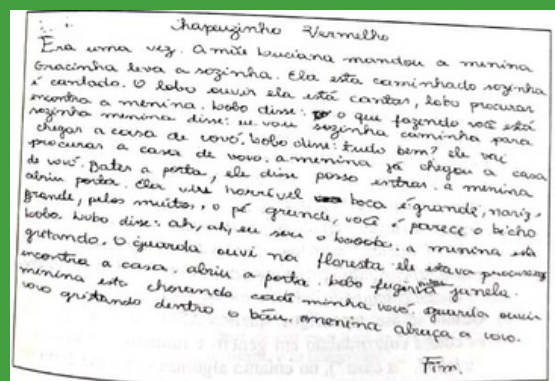 Chapeuzinho Vermelho
Era uma vez. A mãe Luciana mandou a menina
Gracinha leva a sozinha. Ela esta caminhado sozinha
é cantado. O lobo ouvir ela está cantar, lobo procurar
encontra a menina. Lobo disse: o que fazendo você está
sozinha menina disse: eu vou sozinha caminha para
chegar a casa de vovó. Lobo disse: tudo bem? ele vai
procurar a casa de vovo. a menina já chegou a casa
de vovó. Bater a porta, ele disse posso entrar. a menina
abriu porta. Ela vire horrível boca é grande, nariz
grande, pelos muitos, o pé grande, você é parece o bicho
lobo. Lobo disse: ah, ah, eu sou o looobo. a menina está
gritando. O guarda ouvi na floresta ele estava
encontra a casa. abriu a porta. lobo fugiria janela.
menina esta chorando cadê minha vovó. guarda ouvir
vovo gritando dentro o báu. menina abraça a vovo.
Fim.